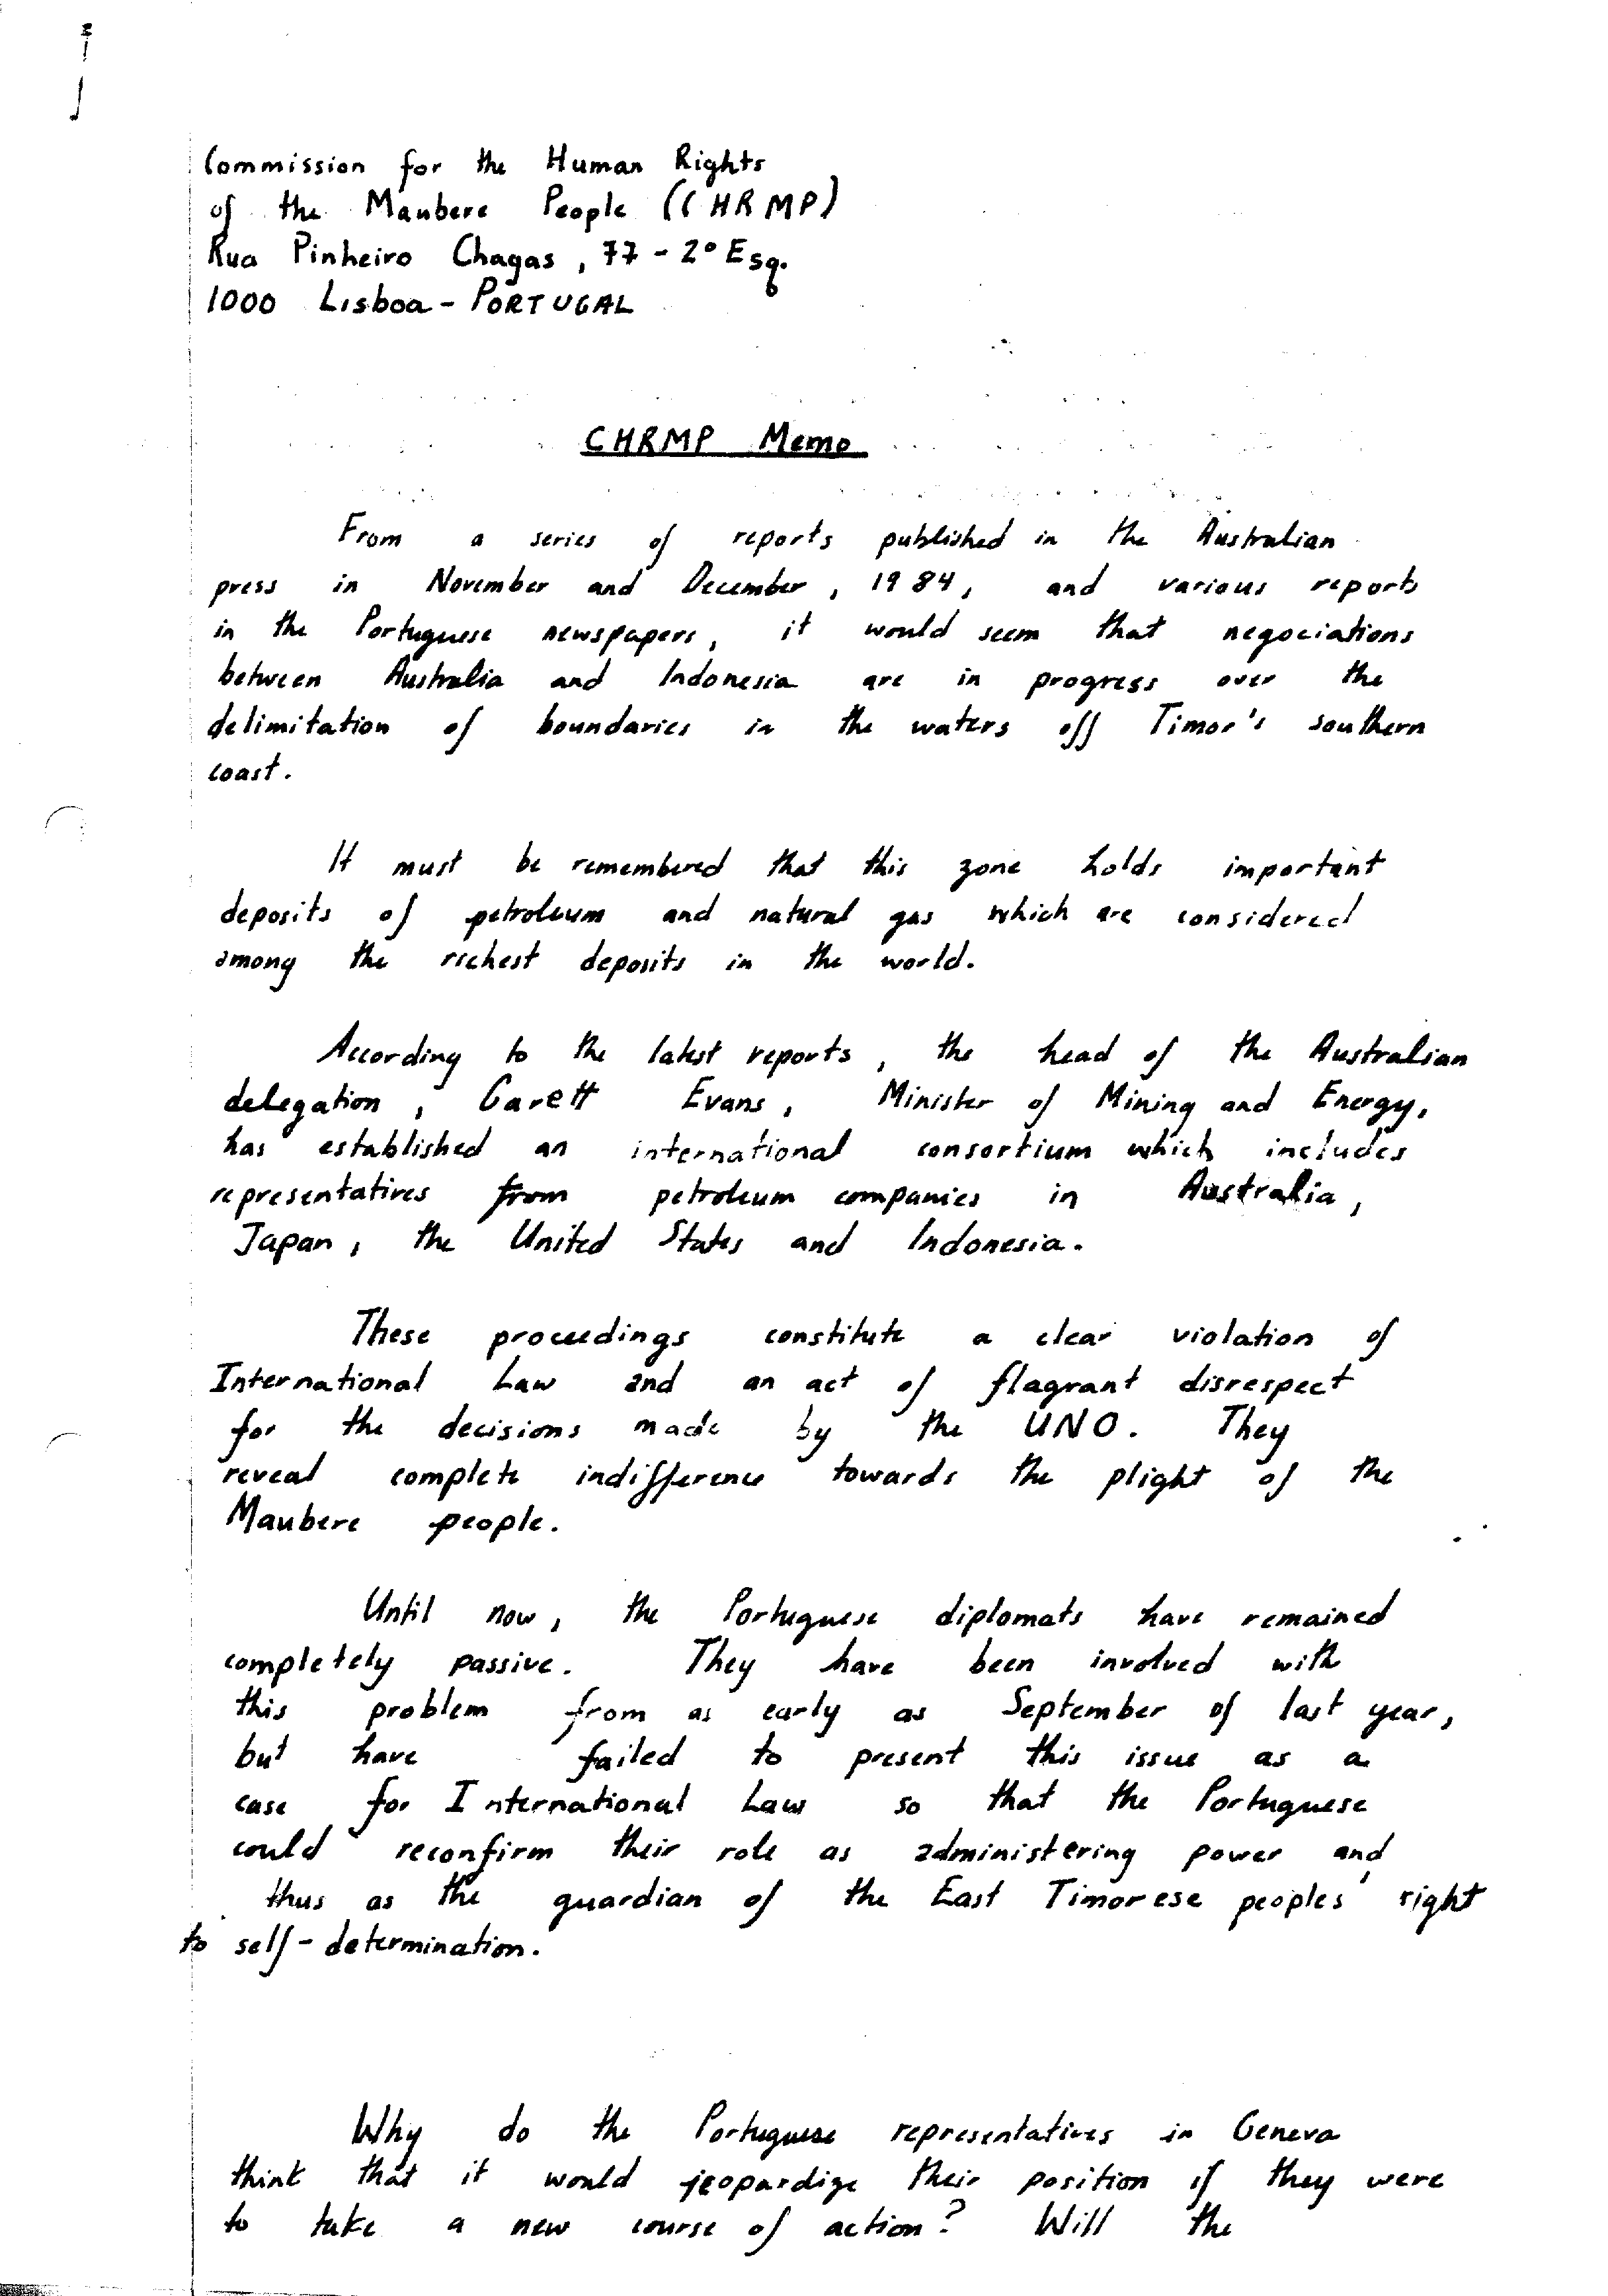 Commission for the Human Rights
of the Maubere People (CHRMP)
Rua Pinheiro Chagas, 77 - 2º Esq.
1000 Lisboa - PORTUGAL
CHRMP Memo
From a series of reports published in the Australian
press in November and December, 1984, and various reports
in the Portuguese newspapers, it would seem that negociations
between Australia and Indonesia are in progress over the
delimitation of boundaries in the waters off Timor's southern
coast.
It must be remembered that this zone holds important
deposits of petroleum and natural gas which are considered
among the richest deposits in the world.
According to the latest reports, the head of the Australian
delegation, Garett Evans, Minister of Mining and Energy,
has established an international consortium which includes
representatives from petroleum companies in Australia,
Japan, the United States and Indonesia.
These proceedings constitute a clear violation of
International Law and an act of flagrant disrespect
for the decisions made by the UNO. They
reveal complete indifference towards the plight of the
Maubere people.
Until now, the Portuguese diplomats have remained
completely passive. They have been involved with
this problem from as early as September of last year,
but have failed to present this issue as a
case for International Law so that the Portuguese
could reconfirm their role as administering power and
thus as the guardian of the East Timorese peoples' right
to self-determination.
Why do the Portuguese representatives in Geneva
think that it would jeopardize their position if they were
to take a new course of action? Will the